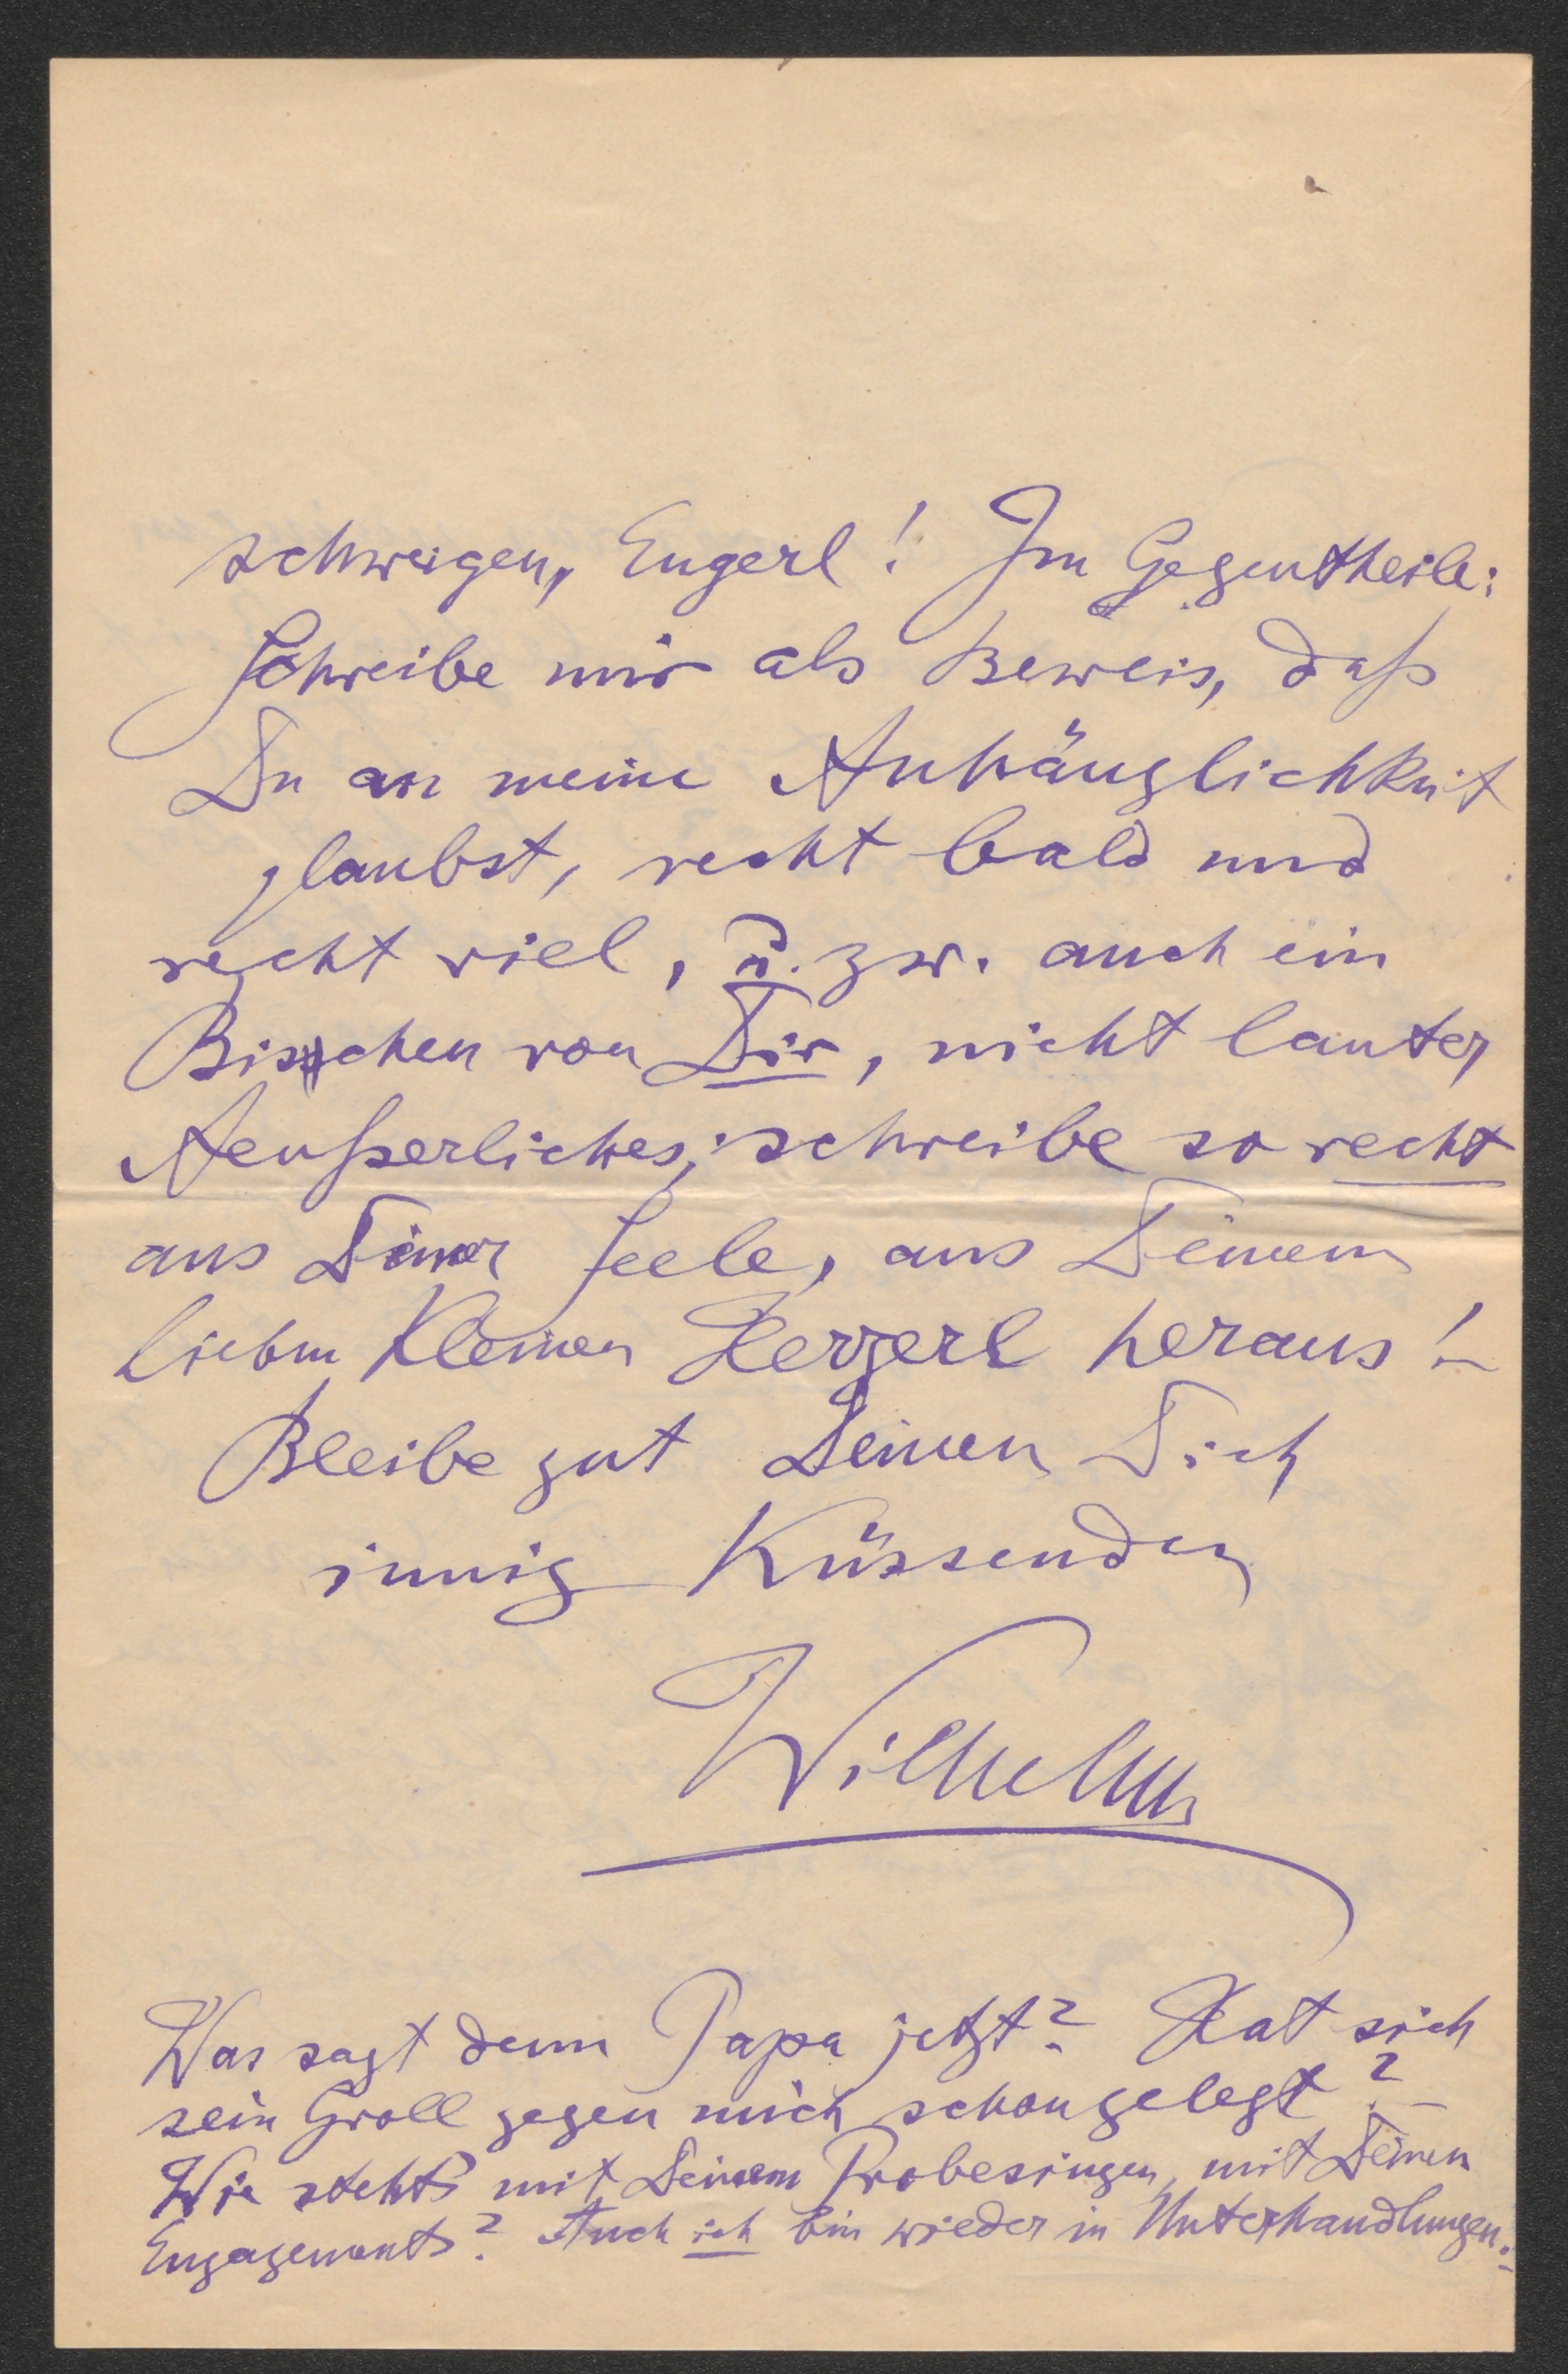 schweigen, Engerl! Im Gegentheile:
Schreibe mir als Beweis, daß
Du an meine Anhänglichkeit
glaubst, recht bald und
recht viel, u. zw. auch ein
Bischen von Dir, nicht lauter
Aeußerliches; schreibe so recht
aus Deiner Seele, aus Deinem
lieben kleinen Herzerl heraus! –
Bleibe gut Deinen Dich
innig Küssenden
Wilhelm
Was sagt denn Papa jetzt? Hat sich
sein Groll gegen mich schon gelegt? –
Wie stehts mit Deinem Probesingen, mit Deinen
Engagements? Auch ich bin wieder in Unterhandlungen. –